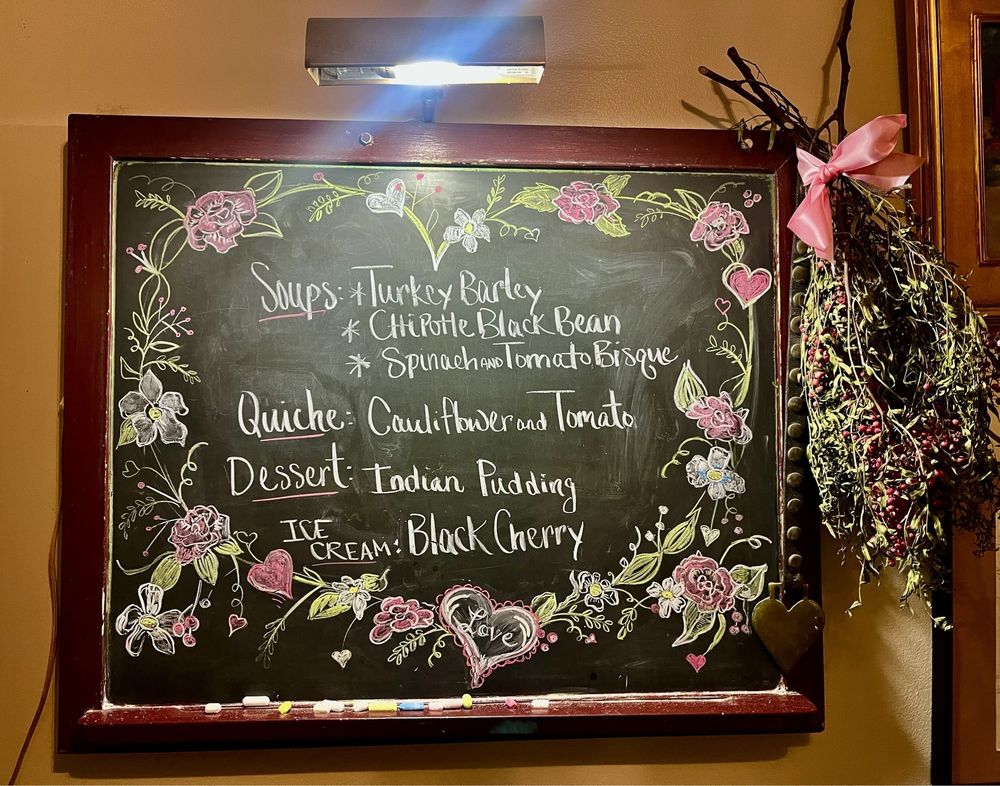 Soups: *Turkey Barley
* Chipotle Black Bean
* Spinach and Tomato Bisque
Quiche: Cauliflower and Tomato
Dessert: Indian Pudding
ICE CREAM: Black Cherry
Love